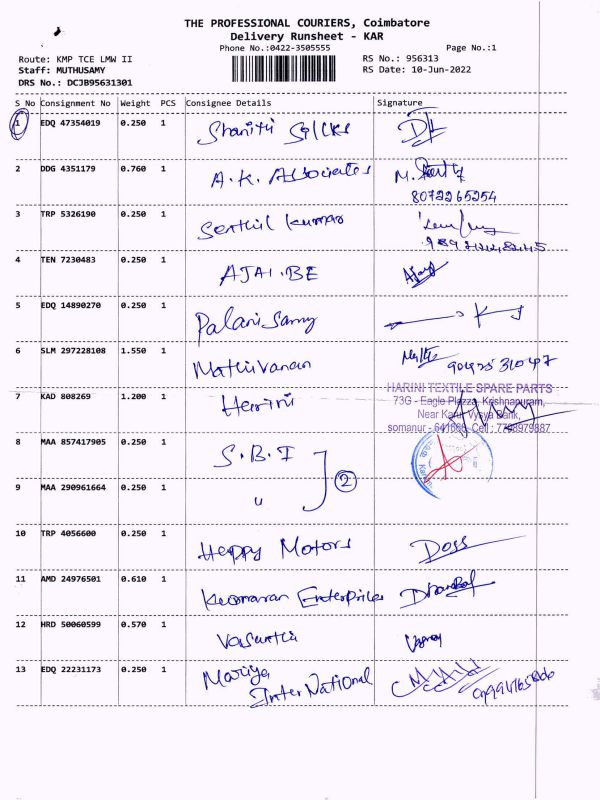 THE PROFESSIONAL COURIERS, Coimbatore
Delivery Runsheet - KAR
Phone No.:0422-3505555 Page No.:1
Route: KMP TCE LMW II RS No.: 956313
Staff: MUTHUSAMY RS Date: 10-Jun-2022
DRS No.: DCJB95631301
S No Consignment No Weight PCS Consignee Details Signature
1 EDQ 47354019 0.250 1
2 DDG 4351179 0.760 1 A.K. Associates M.
8072265254
3 TRP 5326190 0.250 1 Senthil Kumar
4 TEN 7230483 0.250 1 AJAI.BE Ajay
5 EDQ 14890270 0.250 1 Palani Samy
6 SLM 297228108 1.550 1 Mathivanan
HARINI TEXTILE SPARE PARTS
7 KAD 808269 1.200 1 Harini 73G - Eagle Plazza, Krishnapuram,
Near Karur Vysya Bank,
somanur - Cell : 7708979887
8 MAA 857417905 0.250 1 S.B.I
2
9 MAA 290961664 0.250 1 "
10 TRP 4056600 0.250 1 Happy Motors Doss
11 AMD 24976501 0.610 1 Kumaran Enterprises
12 HRD 50060599 0.570 1 Vasantha
13 EDQ 22231173 0.250 1 Mariya
InterNational